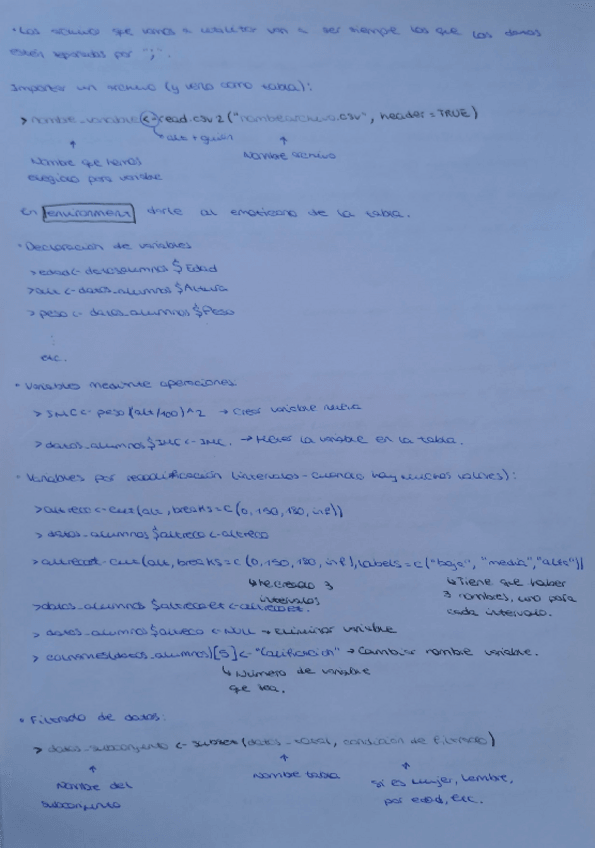 · Los archivos que vamos a utilizar van a ser siempre los que los datos
estén separados por ";".
Importar un archivo (y verlo como tabla):
> nombre_variable <- read.csv2 ("nombrearchivo.csv", header = TRUE)
alt + guión
Nombre que hemos
elegido para variable
Nombre archivo
En environment darle al emoticono de la tabla.
· Declaración de variables
> edad <- datosalumnos $ Edad
> alt <- datos_alumnos $ Altura
> peso <- datos_alumnos $ Peso
⋮
etc.
· Variables mediante operaciones
> IMC <- peso/(alt/100)^2 → Crear variable nueva
> datos_alumnos $ IMC <- IMC. → Meter la variable en la tabla.
· Variables por recodificación (intervalos - cuando hay muchos valores):
> altreco <- cut(alt, breaks = c (0, 150, 180, inf))
> datos_alumnos $ altreco <- altreco
> altrecoet <- cut (alt, breaks = c (0, 150, 180, inf), labels = c ("baja", "media", "alta"))
↳ he creado 3
intervalos
↳ Tiene que haber
3 nombres, uno para
cada intervalo.
> datos_alumnos $ altrecoet <- altrecoet.
> datos_alumnos $ altreco <- NULL → eliminar variable
> colnames(datos_alumnos)[5] <- "Calificación" → Cambiar nombre variable.
↳ Número de variable
que sea.
· Filtrado de datos:
> datos_subconjunto <- subset (datos_total, condición de filtrado)
Nombre del
subconjunto
Nombre tabla
Si es mujer, hombre,
por edad, etc.